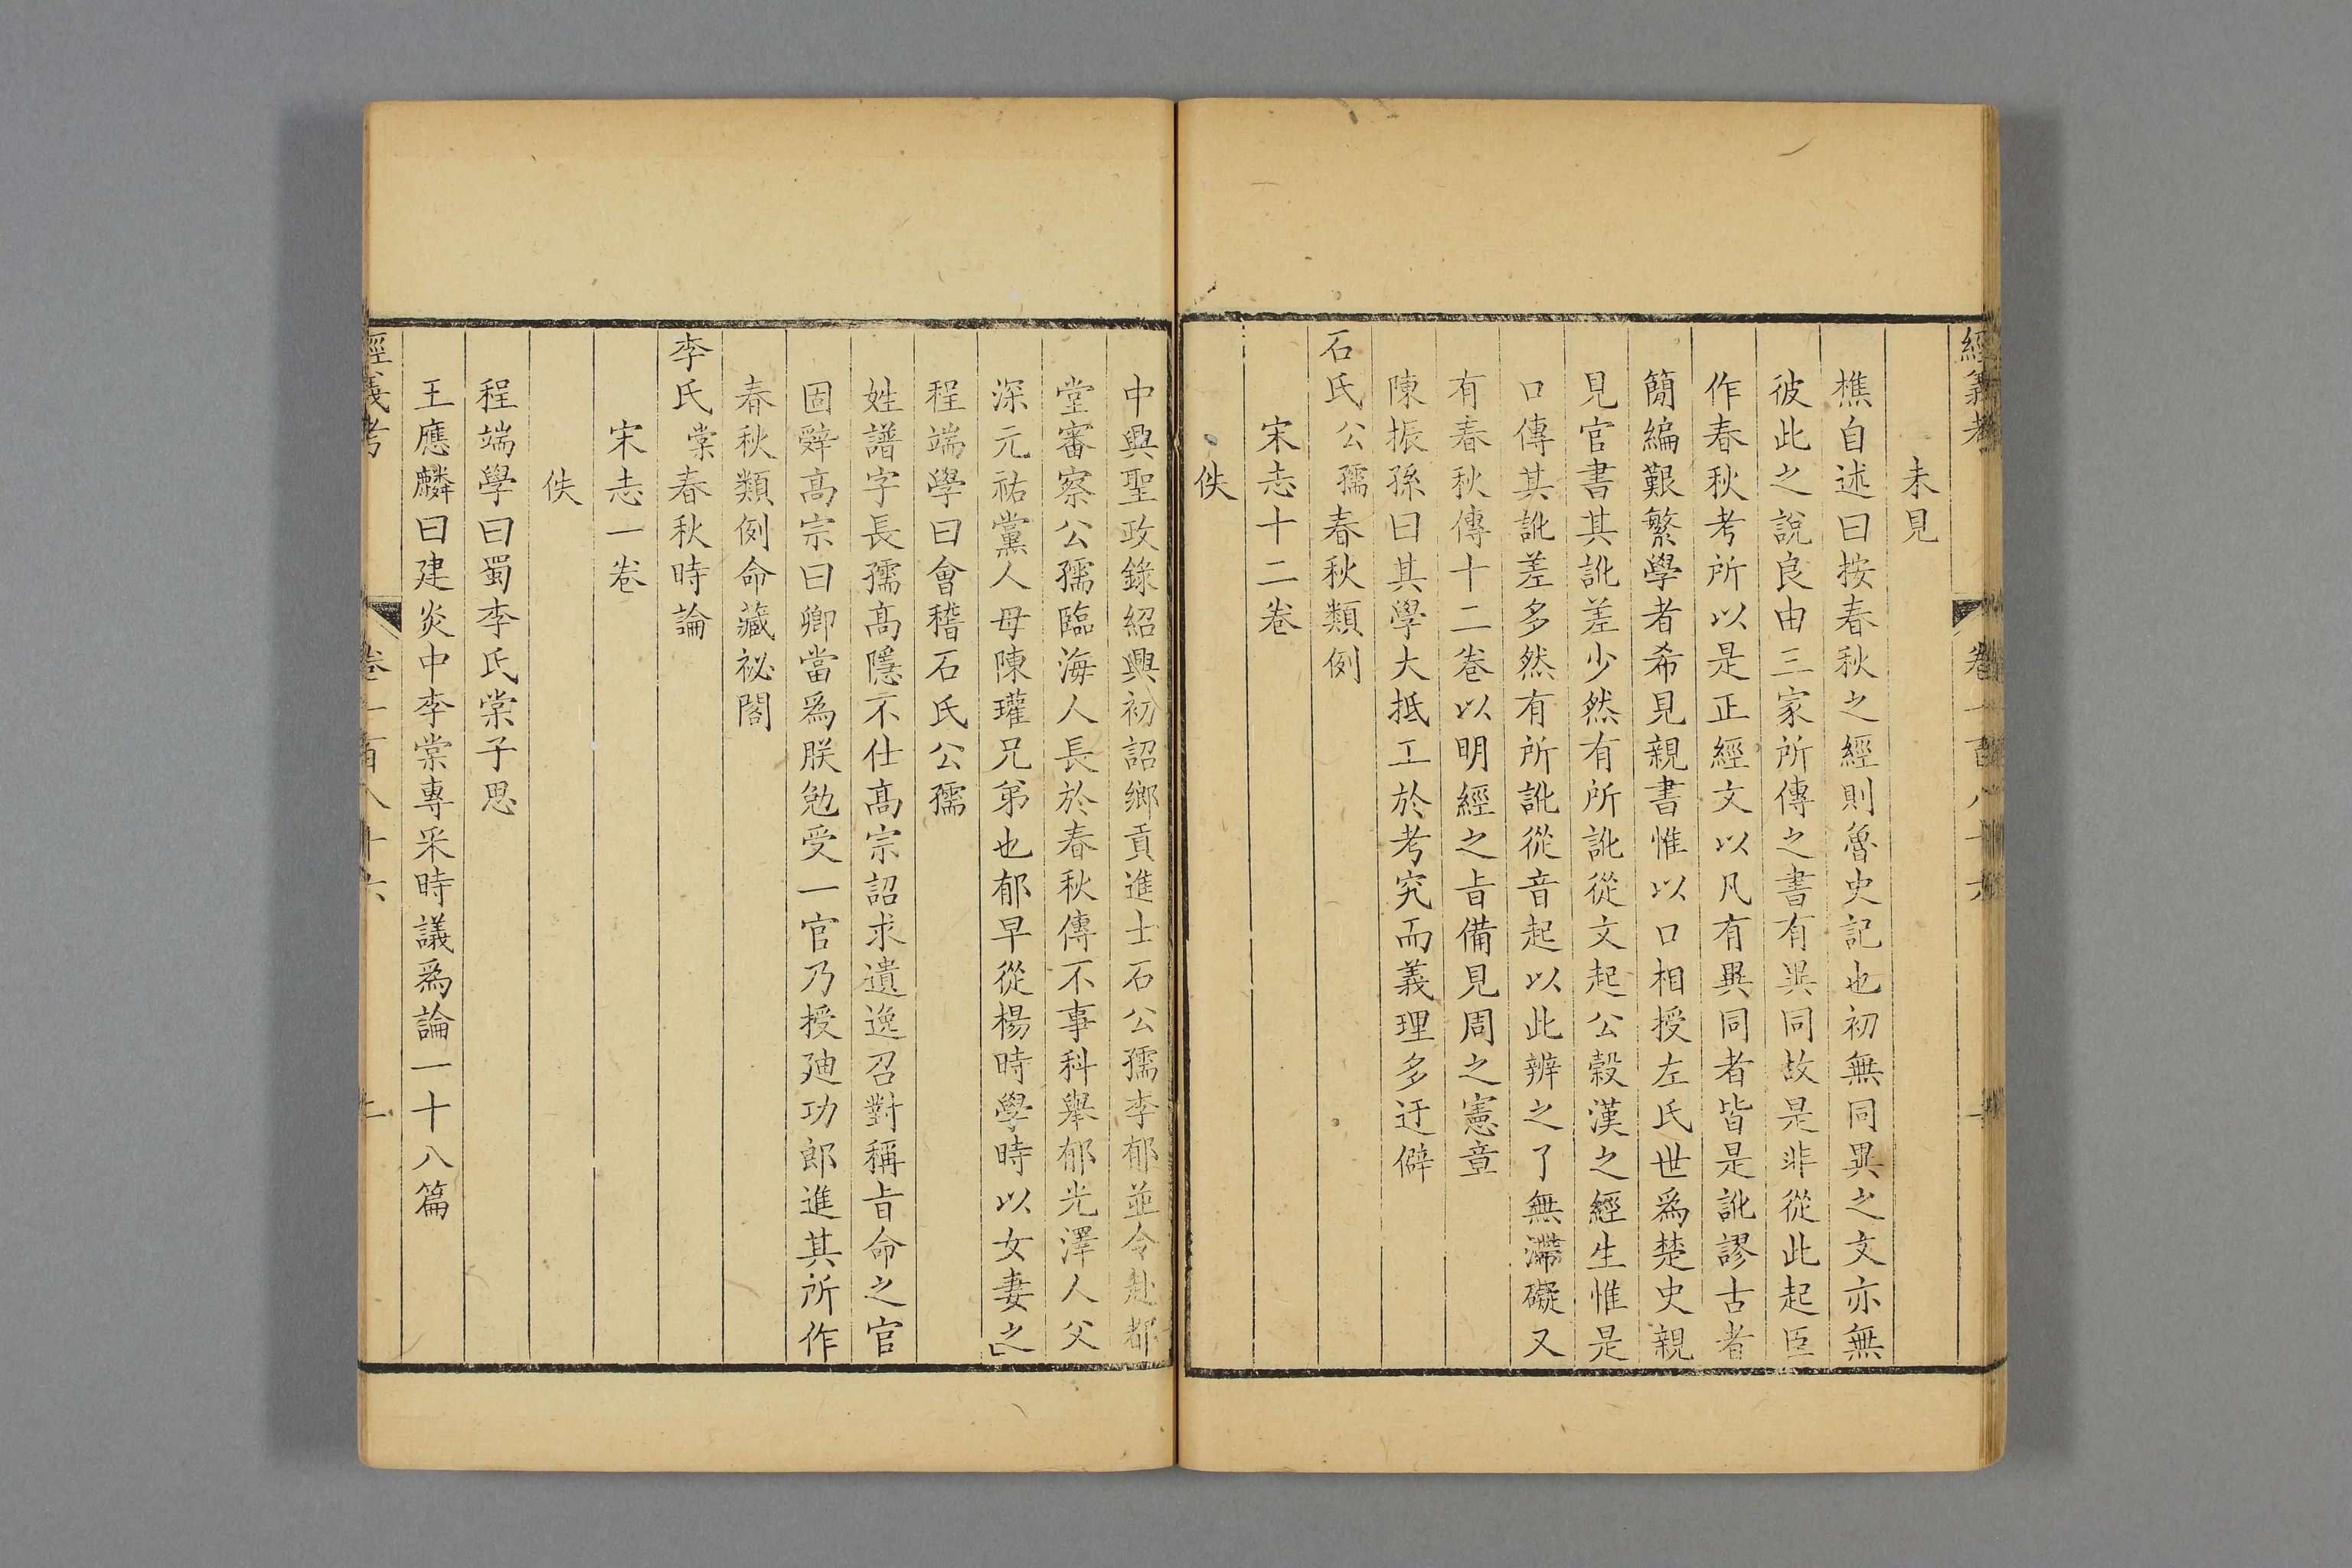 經義考 卷一百八十六
未見
樵自述曰按春秋之經則魯史記也初無同異之文亦無
彼此之說良由三家所傳之書有異同故是非從此起臣
作春秋考所以是正經文以凡有異同者皆是訛謬古者
簡編艱繁學者希見親書惟以口相授左氏世爲楚史親
見官書其訛差少然有所訛從文起公榖漢之經生惟是
口傳其訛差多然有所訛從音起以此辨之了無滯礙又
有春秋傳十二卷以明經之㫖備見周之憲章
陳振孫曰其學大抵工於考究而義理多迂僻
石氏公孺春秋類例
宋志十二卷
佚
中興聖政錄紹興初詔鄉貢進士石公孺李郁並令赴都
堂審察公孺臨海人長於春秋傳不事科舉郁光澤人父
深元祐黨人母陳瓘兄弟也郁早從楊時學時以女妻之
程端學曰會稽石氏公孺
姓譜字長孺髙隱不仕髙宗詔求遺逸召對稱㫖命之官
固辤髙宗曰卿當爲朕勉受一官乃授廸功郎進其所作
春秋類例命藏祕閣
李氏棠春秋時論
宋志一卷
佚
程端學曰蜀李氏棠子思
王應麟曰建炎中李棠專采時議爲論一十八篇
經義考 卷一百八十六 二